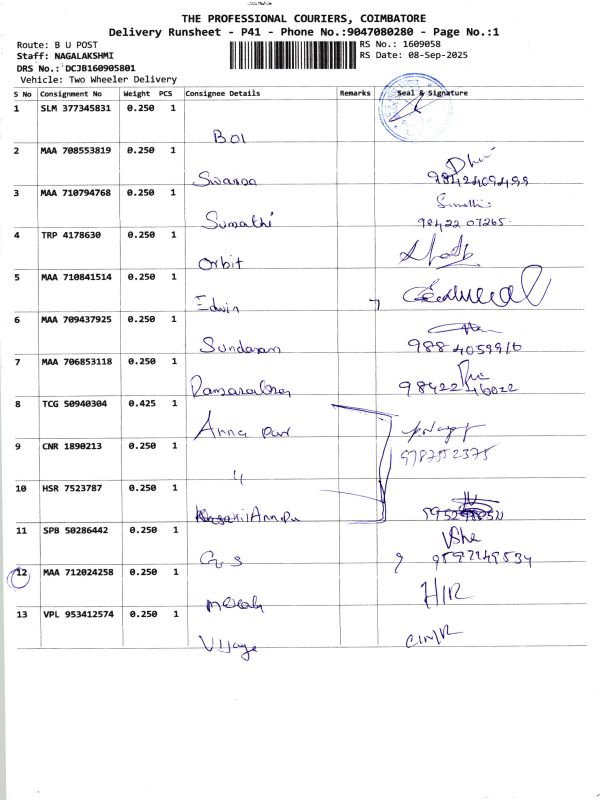 THE PROFESSIONAL COURIERS, COIMBATORE
Delivery Runsheet - P41 - Phone No.:9047080280 - Page No.:1
Route: B U POST RS No.: 1609058
Staff: NAGALAKSHMI RS Date: 08-Sep-2025
DRS No.: DCJB160905801
Vehicle: Two Wheeler Delivery
S No Consignment No Weight PCS Consignee Details Remarks Seal & Signature
1 SLM 377345831 0.250 1
BOI
2 MAA 708553819 0.250 1
Swarna
3 MAA 710794768 0.250 1 Sumathi
Sumathi 98422 07265
4 TRP 4178630 0.250 1
Orbit
5 MAA 710841514 0.250 1
Edwin
6 MAA 709437925 0.250 1
Sundaram 988 4059916
7 MAA 706853118 0.250 1
98422 46022
8 TCG 50940304 0.425 1
Anna
9 CNR 1890213 0.250 1 9787552375
"
10 HSR 7523787 0.250 1
11 SPB 50286442 0.250 1
12 MAA 712024258 0.250 1 H/R
13 VPL 953412574 0.250 1
Vijaya